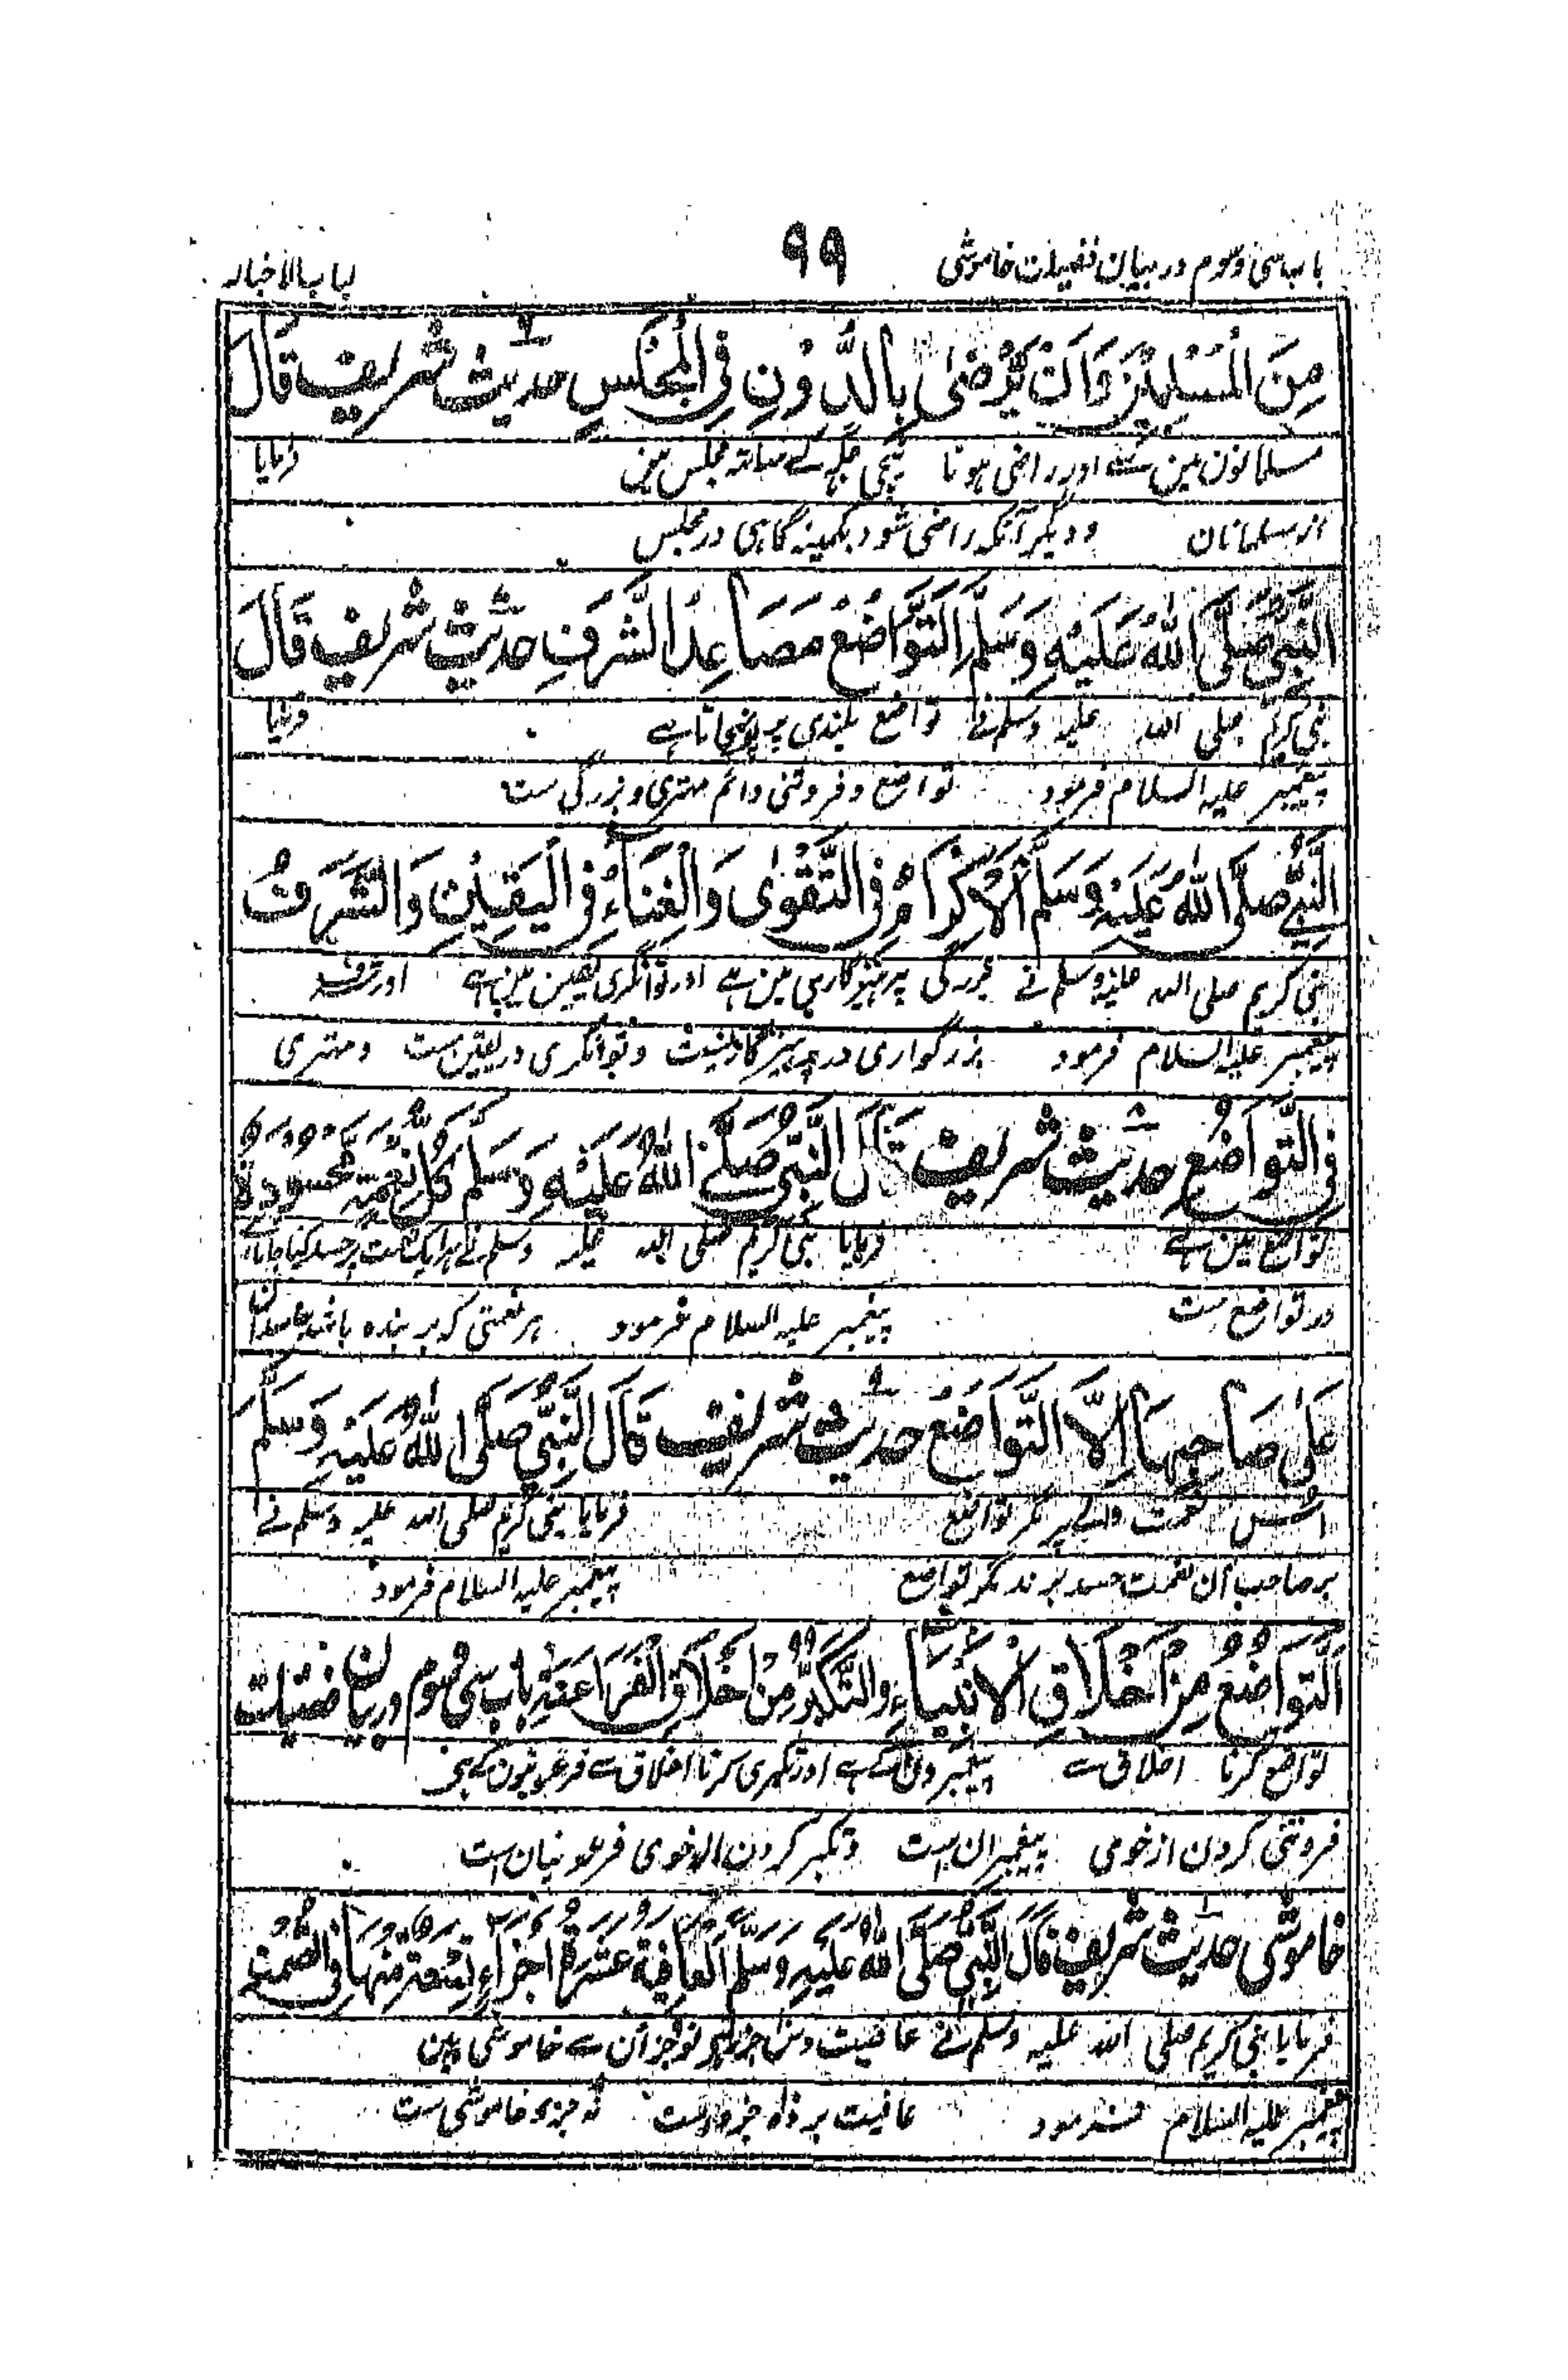 باب سی و سوم در بیان فضیلت خاموشی ۹۹ لباب الاخبار
مِنَ الْمُسْلِمِیْنَ وَاَنْ یَّرْضٰی بِالدُّوْنِ فِی الْمَجْلِسِ حدیث شریف قَالَ
مسلمانون مین سے اور راضی ہونا نیچی جگہ کے ساتھ مجلس مین فرمایا
از مسلمانان و دیگر آنکہ راضی شود بکمینہ گاہی در مجلس
النَّبِیُّ صَلَّی اللهُ عَلَیْهِ وَسَلَّمَ اَلتَّوَاضُعُ مَصَاعِدُ الشَّرَفِ حدیث شریف قَالَ
نبی کریم صلی اللہ علیہ وسلم نے تواضع بلندی پر پونچاتا ہے فرمایا
پیغمبر علیہ السلام فرمود تواضع و فروتنی دائم مہتری و بزرگی ست
النَّبِیُّ صَلَّی اللهُ عَلَیْهِ وَسَلَّمَ اَلْاِکْرَامُ فِی التَّقْوٰی وَالْغِنَاءُ فِی الْیَقِیْنِ وَالشَّرَفُ
نبی کریم صلی اللہ علیہ وسلم نے بزرگی پرہیزگاری مین ہے اور تو انگری یقین مین ہے اور شرف
پیغمبر علیہ السلام فرمود بزرگواری در پرہیزگاریست و توانگری در یقین ست و مہتری
فِی التَّوَاضُعِ حدیث شریف قَالَ النَّبِیُّ صَلَّی اللهُ عَلَیْهِ وَسَلَّمَ کُلُّ نِعْمَةٍ مَحْسُوْدَةٌ
تواضع مین ہے فرمایا نبی کریم صلی اللہ علیہ وسلم نے ہر ایک نعمت پر حسد کیا جاتا ہے
در تواضع ست پیغمبر علیہ السلام فرمود ہر نعمتی کہ بر بندہ باشد حاسدان
عَلٰی صَاحِبِهَا اِلَّا التَّوَاضُعَ حدیث شریف قَالَ النَّبِیُّ صَلَّی اللهُ عَلَیْهِ وَسَلَّمَ
اُس نعمت والے پر مگر تواضع فرمایا نبی کریم صلی اللہ علیہ وسلم نے
بر صاحب آن نعمت حسد برند مگر تواضع پیغمبر علیہ السلام فرمود
اَلتَّوَاضُعُ مِنْ اَخْلَاقِ الْاَنْبِیَاءِ وَالتَّکَبُّرُ مِنْ اَخْلَاقِ الْفَرَاعِنَةِ باب سی و سوم در بیان فضیلت
تواضع کرنا اخلاق سے پیغمبرون کے ہے اور تکبری کرنا اخلاق سے فرعونیون کے ہے
فروتنی کردن از خوی پیغمبران ست و تکبر کردن از خوی فرعونیان است
خاموشی حدیث شریف قَالَ النَّبِیُّ صَلَّی اللهُ عَلَیْهِ وَسَلَّمَ اَلْعَافِیَةُ عَشَرَةُ اَجْزَاءٍ تِسْعَةٌ مِّنْهَا فِی الصَّمْتِ
فرمایا نبی کریم صلی اللہ علیہ وسلم نے عافیت دس جز ہے نو جز اُن سے خاموشی مین
پیغمبر علیہ السلام فرمود عافیت بر دہ جزو ست نہ جزو خاموشی ست